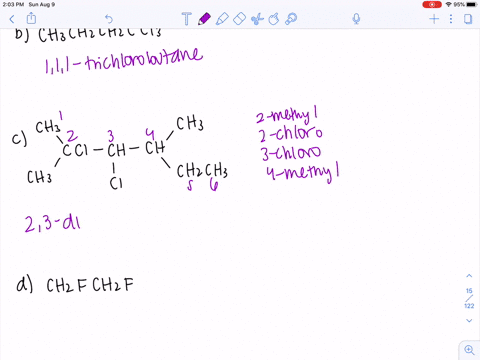 2:03 PM Sun Aug 9
95%
b) CH3CH2CH2CCl3
1,1,1-trichlorobutane
1
CH3
2
3
4
CH3
c)
CCl-CH-CH
CH3
Cl
CH2CH3
5 6
2-methyl
2-chloro
3-chloro
4-methyl
2,3-di
d) CH2FCH2F
15
/
122